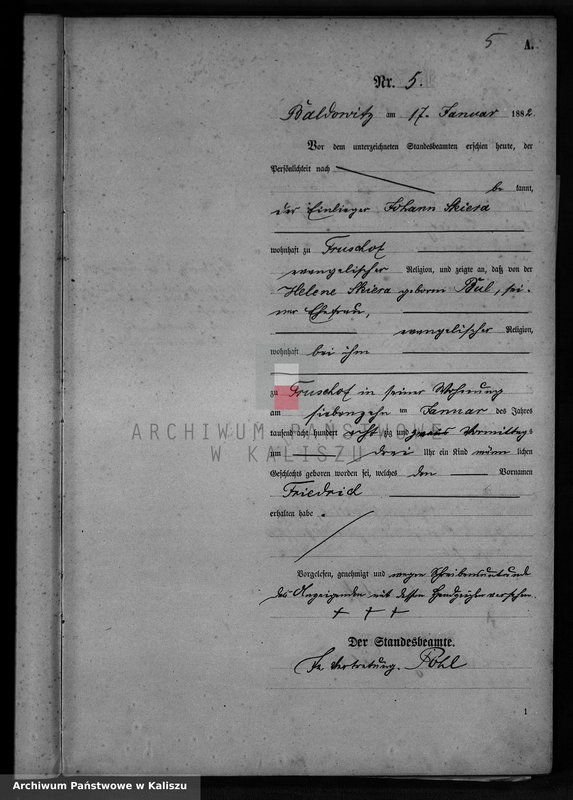 5 A.
Nr. 5.
Baldowitz am 17. Januar 1882.
Vor dem unterzeichneten Standesbeamten erschien heute, der
Persönlichkeit nach
be kannt,
der Einlieger Johann Skiera
wohnhaft zu Fruschof
evangelischer Religion, und zeigte an, daß von der
Helene Skiera geborne Bul, sei-
ner Ehefrau,
evangelischer Religion,
wohnhaft bei ihm
zu Fruschof in seiner Wohnung
am siebenzehn ten Januar des Jahres
tausend acht hundert acht zig und zwei Vormittags
um drei Uhr ein Kind männ lichen
Geschlechts geboren worden sei, welches den Vornamen
Friedrich
erhalten habe.
Vorgelesen, genehmigt und wegen Schreibensunkunde
des Anzeigenden mit dessen Handzeichen versehen.
+ + +
Der Standesbeamte.
In Vertretung. Pohl
1
ARCHIWUM PAŃSTWOWE
W KALISZU
Archiwum Państwowe w Kaliszu